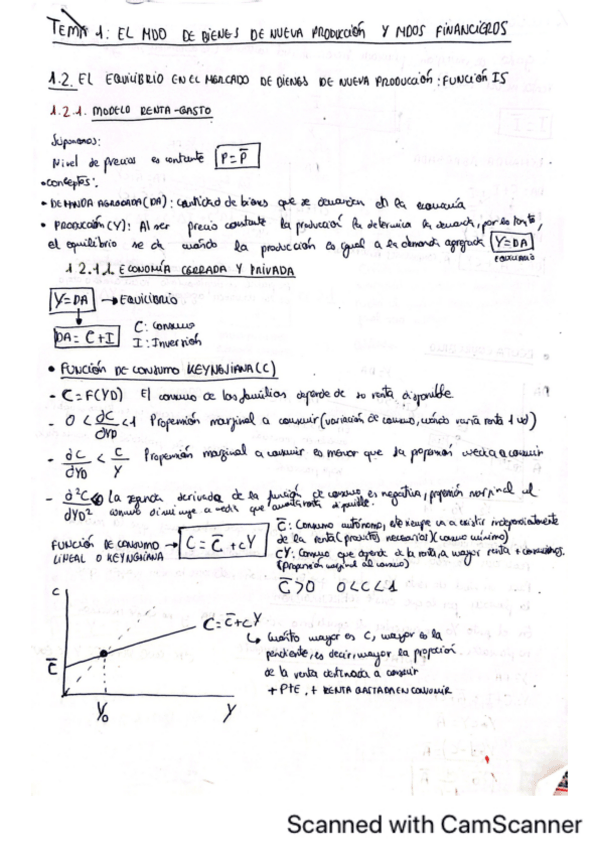 TEMA 1: EL MDO DE BIENES DE NUEVA PRODUCCIÓN Y MDOS FINANCIEROS
1.2. EL EQUILIBRIO EN EL MERCADO DE BIENES DE NUEVA PRODUCCIÓN: FUNCIÓN IS
1.2.1. MODELO RENTA-GASTO
Suponemos:
Nivel de precios es contante P = P̅
• conceptos:
• DEMANDA AGREGADA (DA): cantidad de bienes que se demandan en la economía
• PRODUCCIÓN (Y): Al ser precio constante la producción la determina la demanda, por lo tanto,
el equilibrio se da cuando la producción es igual a la demanda agregada Y = DA
EQUILIBRIO
1.2.1.1. ECONOMÍA CERRADA Y PRIVADA
Y = DA → EQUILIBRIO
DA = C + I C: Consumo
I: Inversión
• FUNCIÓN DE CONSUMO KEYNESIANA (C)
- C = F(YD) El consumo de las familias depende de su renta disponible
- 0 < ∂C/∂YD < 1 Propensión marginal a consumir (variación de consumo, cuándo varía renta 1 ud)
- ∂C/∂YD < C/Y Propensión marginal a consumir es menor que la propensión media a consumir
- ∂²C/∂YD² La segunda derivada de la función de consumo es negativa, propensión marginal al
consumo disminuye a medida que aumenta renta disponible.
FUNCIÓN DE CONSUMO LINEAL O KEYNESIANA → C = C̅ + cY
C̅: Consumo autónomo, siempre va a existir independientemente
de la renta (productos necesarios) (consumo mínimo)
cY: Consumo que depende de la renta, a mayor renta + consumimos.
(Propensión marginal al consumo)
C̅ > 0 0 < C < 1
C
C = C̅ + cY
↳ Cuánto mayor es c, mayor es la
pendiente, es decir, mayor la proporción
de la renta destinada a consumir
+ PTE, + RENTA GASTADA EN CONSUMIR
C̅
Y₀ Y
Scanned with CamScanner